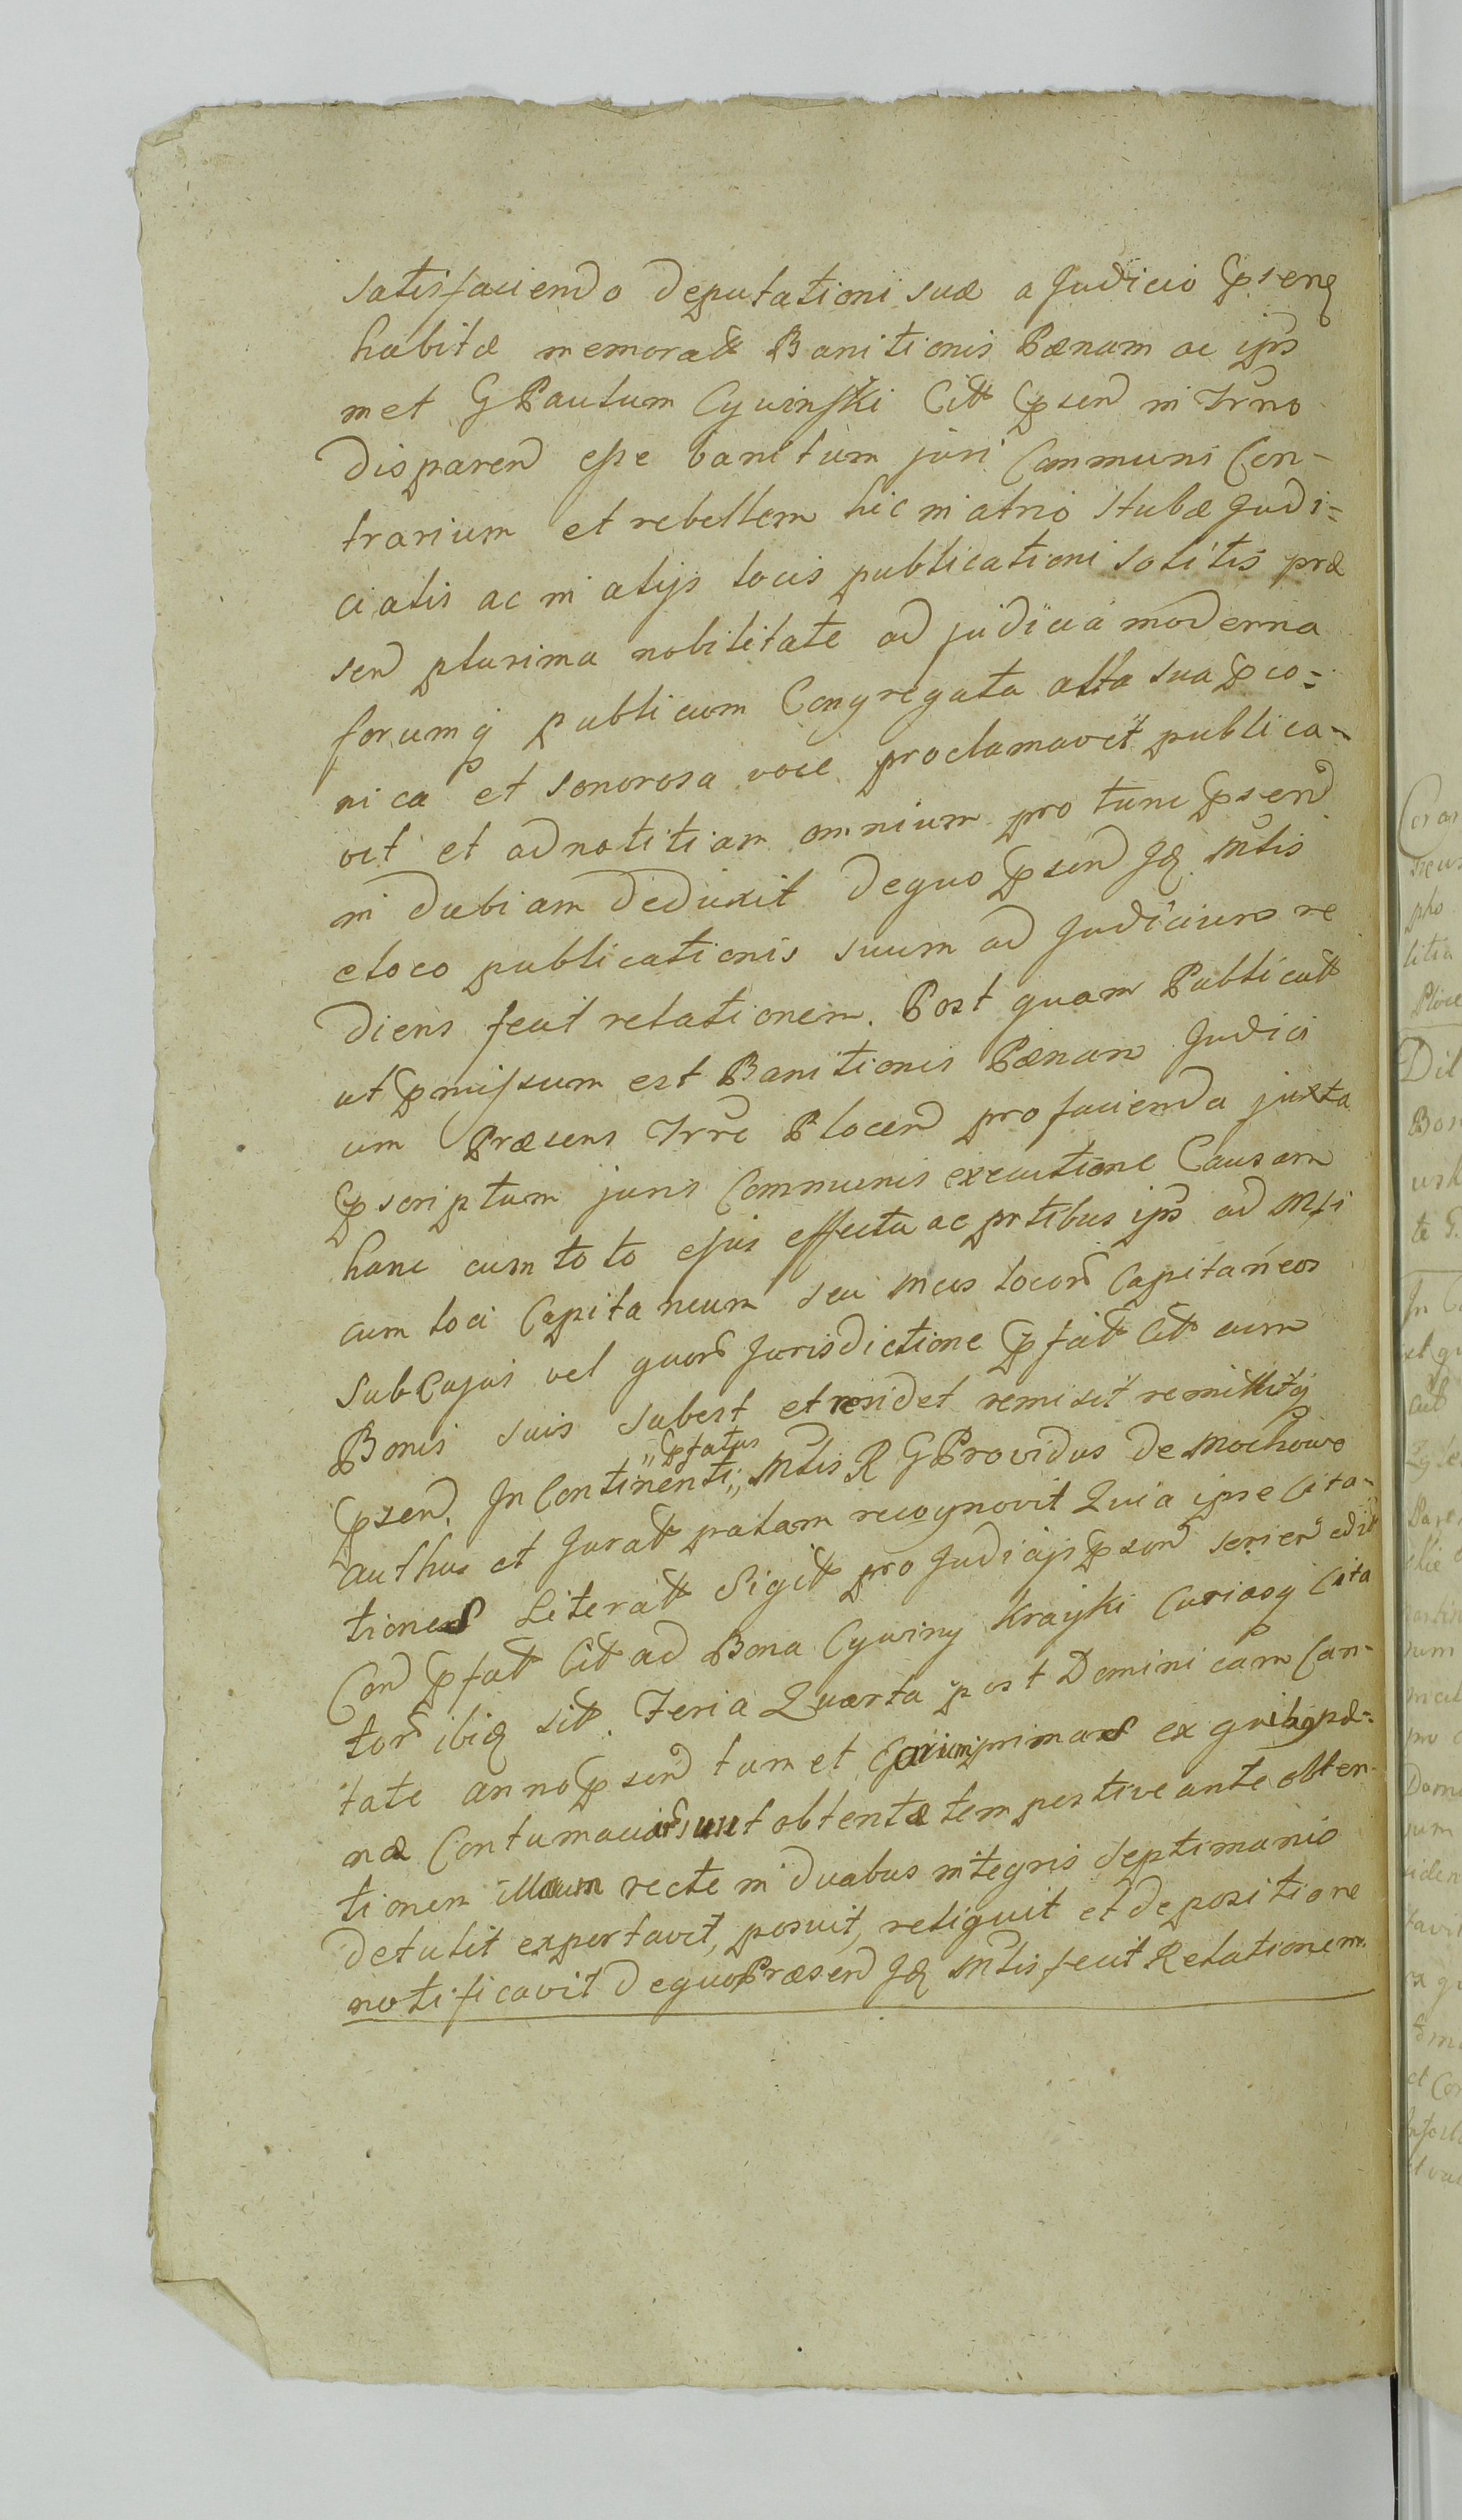 satisfaciendo deputationi suæ a Judicio psenq
habitæ memoratt Banitionis Pænam ac ips
met G Paulum Cywinski Citt psend in Trno
disparend esse banitum juri Communi Con-
trarium et rebellem hic in atrio stubæ Judi=
cialis ac in alijs locis publicationi solitis præ
send plurima nobilitate ad judicia moderna
forumq publicum Congregata alta sua pco=
nica et sonorosa voce proclamavit publica-
vit et ad notitiam omnium pro tunc psend
in dubiam deduxit de quo psend Jd Mtlis
e loco publicationis suum ad Judicium re
diens fecit relationem. Post quam Publicatt
ut pmissum est Banitionis Pænam Judici
um Præsens Trre Plocen pro facienda juxta
pscriptum juris Communis executione Causam
hanc cum toto ejus effectu ac prtibus ips ad Msi
cum loci Capitaneum seu Mcos locord Capitáneos
sub Cujus vel quord Jurisdictione pfatt Citt cum
Bonis suis subest et residet remisit remittitq
psend. In Continenti,, Mtlis R G Providus de Mochowo
,,pfatus
authus et Juratt palam recognovit Quia ipse Cita-
tiones Literatt Sigitt pro Judicijs psend serien edit
Cond pfatt Citt ad Bona Cywiny Krayski Curiasq Cita
tord ibiq sitt. Feria Quarta post Dominicam Can-
tate anno psend tum et primas ex quibq pæ-
næ Contumaciard sunt obtentæ tempestive ante obten-
tionem illarum recte in duabus integris septimanis
detulit exportavit, posuit, reliquit et de positione
notificavit de quo Præsend Jd Mtlis fecit Relationem.